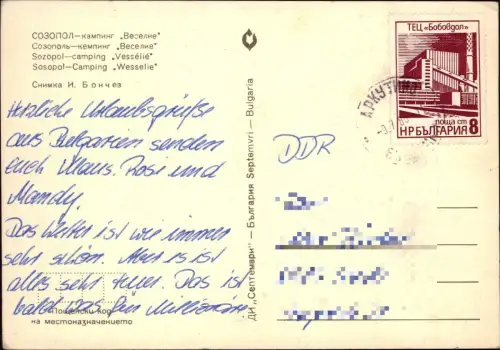 СОЗОПОЛ—кампинг „Веселие"
Созополь—кемпинг „Веселие"
Sozopol—camping „Vessélié"
Sosopol—Camping „Wesselie"
Снимка И. Бончев
Herzliche Urlaubsgrüße
aus Bulgarien senden
euch Klaus, Rosi und
Mandy.
Das Wetter ist wie immer
sehr schön. Aber es ist
alles sehr teuer. Das ist
bald was für Millionäre
Пощенски код
на местоназначението
ДИ „Септември" — България Septemvri — Bulgaria
ТЕЦ „Бобовдол"
поща ст
НР БЪЛГАРИЯ 8
АРКУТИНО
DDR